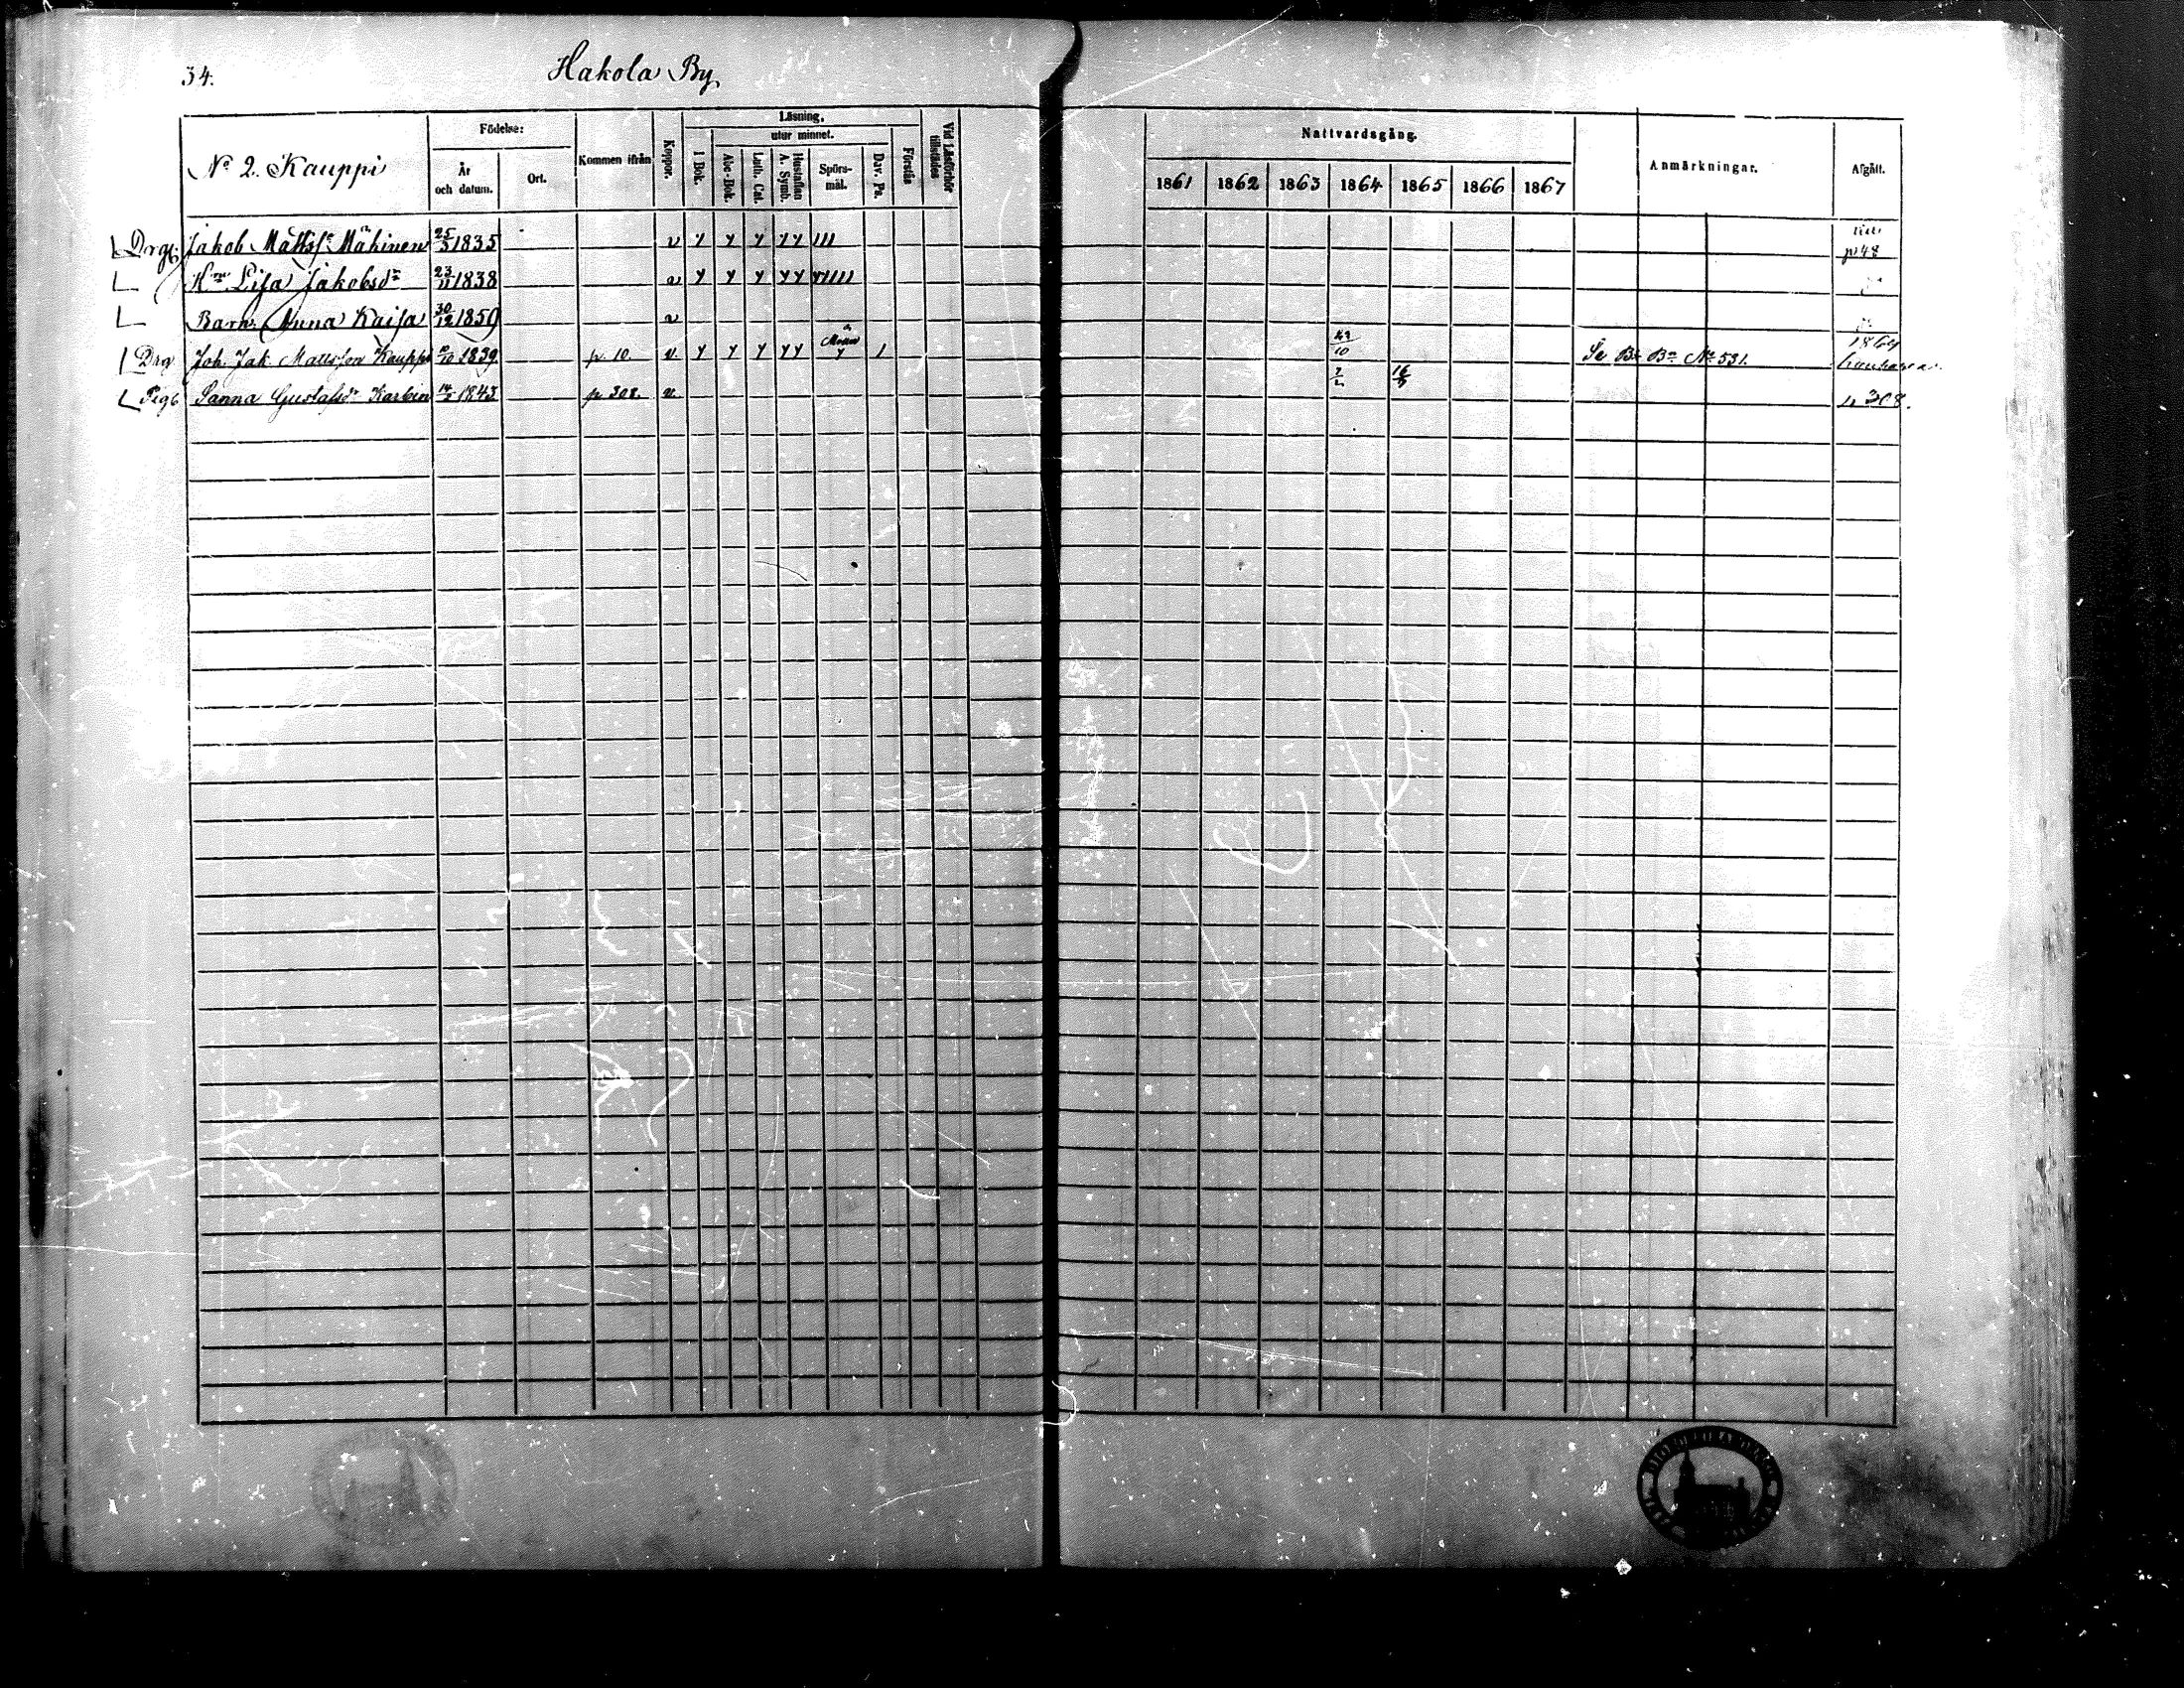 34.
Hakola By
Nº 2. Kauppi
Födelse:
År och datum.
Ort.
Kommen ifrån
Koppor.
Läsning,
I Bok.
utur minnet.
Abc-Bok.
Luth. Cat.
Hustaflan A. Symb.
Spörs-mål.
Dav. Ps.
Förstås
Vid Läsförhör tillstädes
Nattvardsgång.
1861 1862 1863 1864 1865 1866 1867
Anmärkningar.
Afgått.
Drg. Jakob Mattss. Mäkinen 25/3 1835 v y y y y y p 48
Hn Lisa Jakobsdr 23/11 1838 v y y y y y
Barn: Anna Kaisa 30/12 1859 v
Drg Joh. Jak. Mattsson Kauppi 10/10 1839 p. 10. v. y y y y y 10 Se Bt Bn Nº 531. 1864
Pig. Sanna Gustafsdr 1843 p. 308. v. 308.